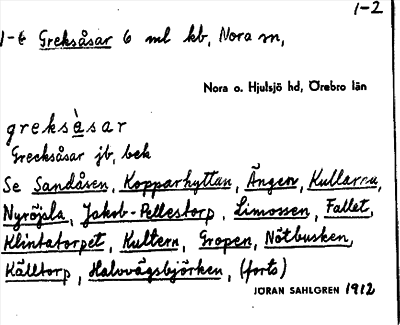 1-2
1-6 Greksåsar 6 ml kb, Nora sn,
Nora o. Hjulsjö hd, Örebro län
greksàsar
Grecksåsar jb, bek
Se Sandåsen, Kopparhyttan, Ängen, Kullarna,
Nyröjsla, Jakob-Pellestorp, Limossen, Fallet,
Klintatorpet, Kultern, Gropen, Nötbusken,
Källtorp, Halvvägsbjörken, (forts)
JÖRAN SAHLGREN 1912